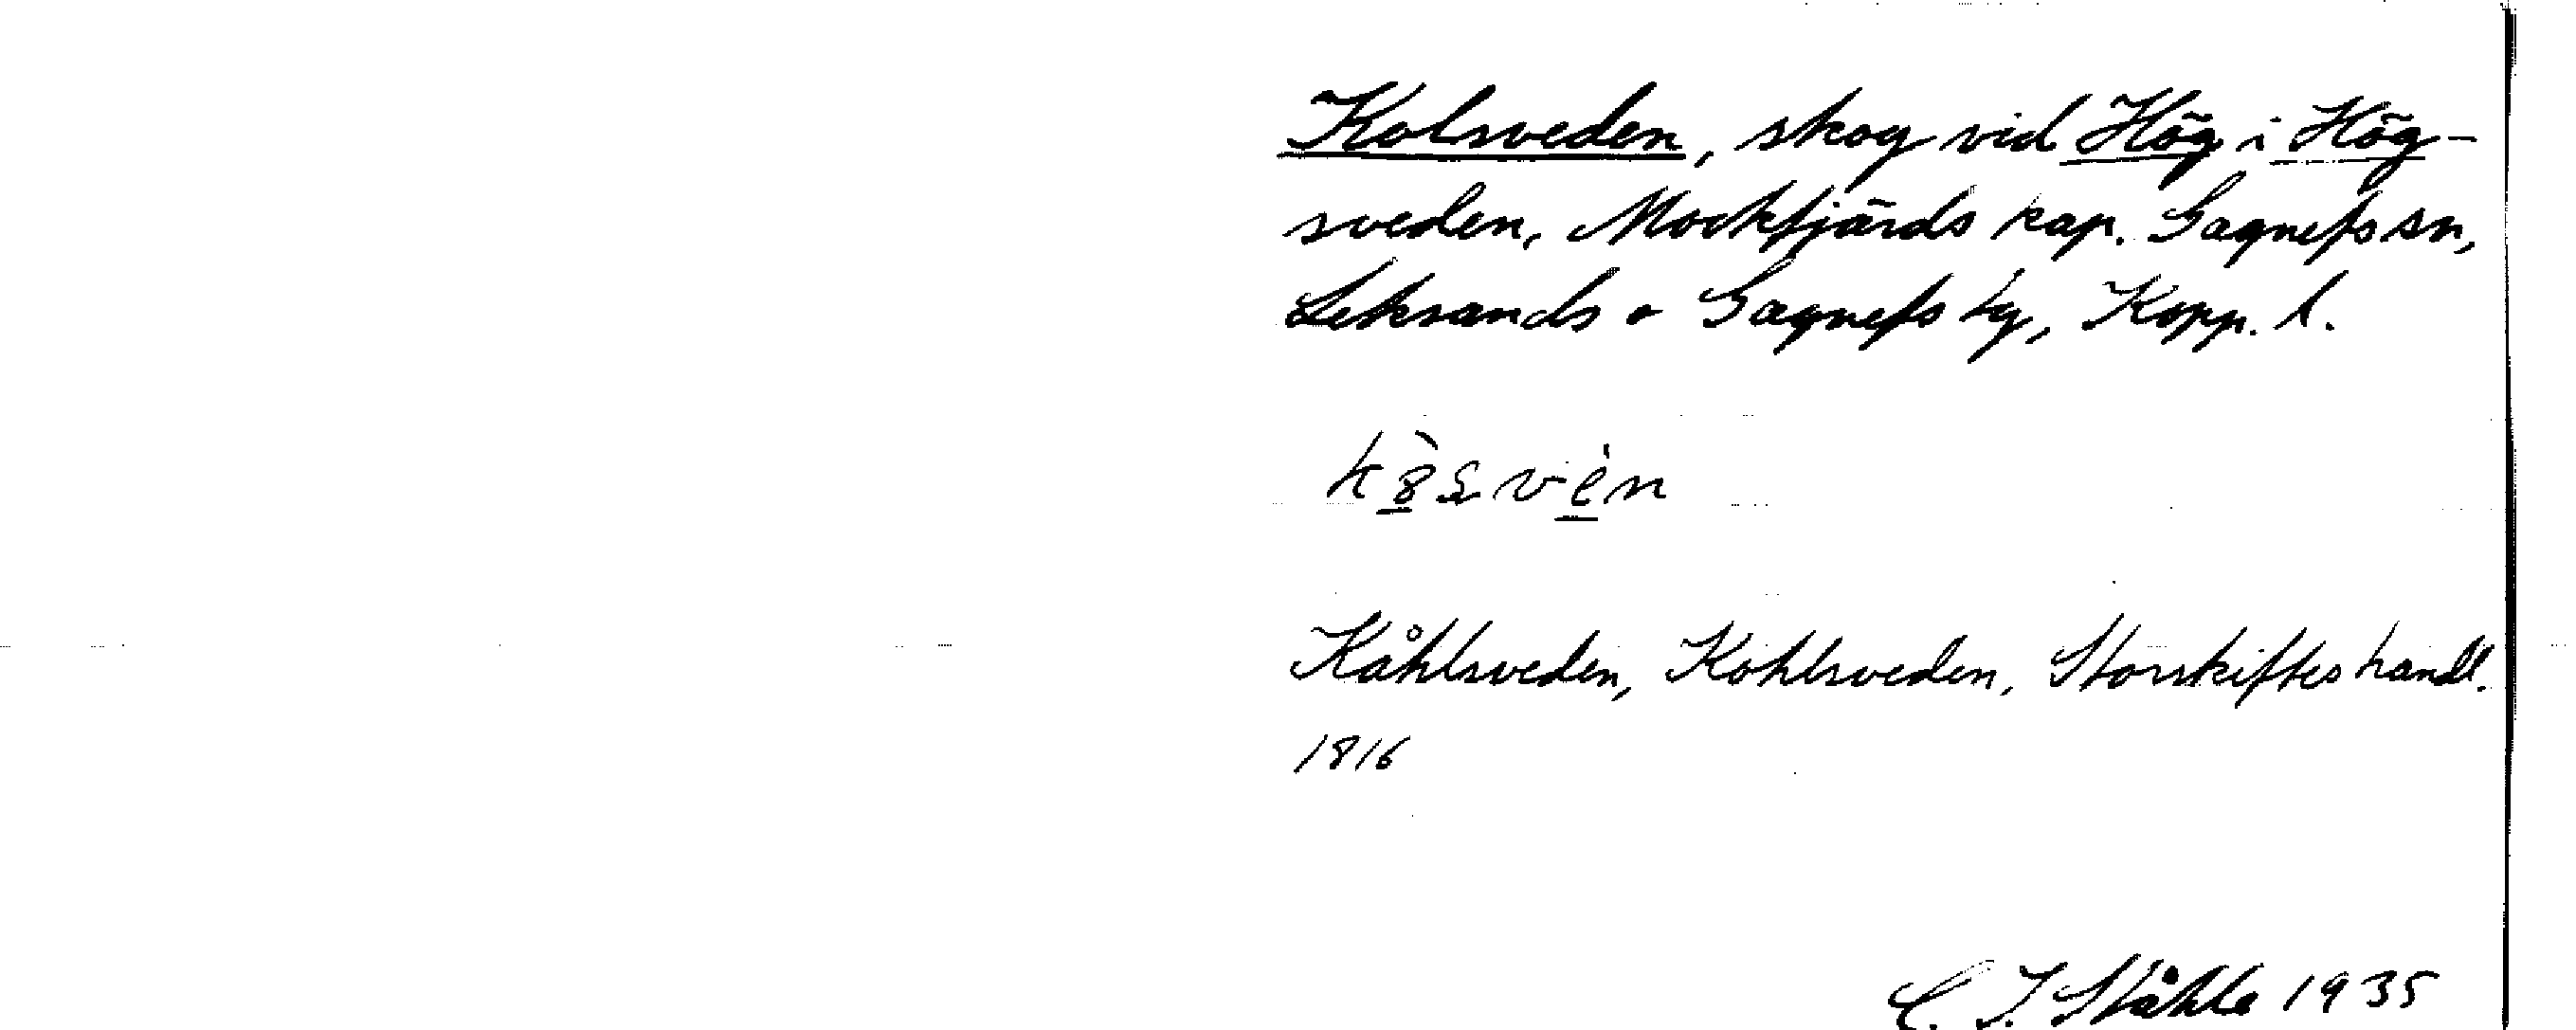 Kolsveden, skog vid Hög i Hög-
sveden, Mockfjärds kap. Gagnefs sn,
Leksands o Gagnefs tg, Kopp. l.
Kåhlsveden, Kohlsveden, Storskifteshandl.
1816
C. I. Ståhle 1935